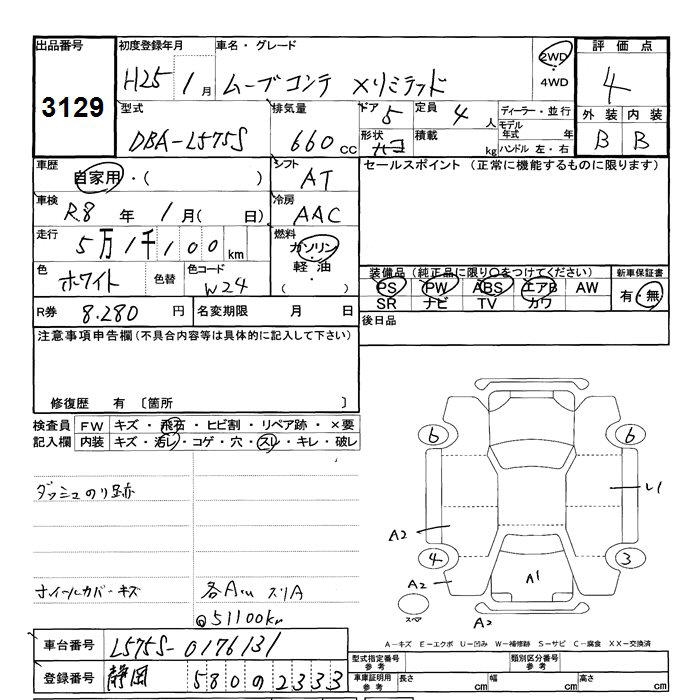 出品番号 初度登録年月 車名・グレード 2WD ・ 4WD 評価点
3129 H25 1月 ムーブコンテ Xリミテッド 4
型式 排気量 ドア 5 定員 4人 ディーラー・並行 外装 内装
DBA-L575S 660cc 形状 積載 kg モデル年式 年 ハンドル 左・右 B B
車歴 自家用・( ) シフト AT セールスポイント (正常に機能するものに限ります)
車検 R.8年 1月( 日) 冷房 AAC
走行 5万1千100km 燃料 ガソリン・軽油 ( )
色 ホワイト 色替 色コード W24 装備品 (純正品に限り○をつけてください) 新車保証書
PS PW ABS エアB AW 有・無
SR ナビ TV カワ
R券 8.280円 名変期限 月 日 後日品
注意事項申告欄(不具合内容等は具体的に記入して下さい)
修復歴 有 〔箇所 〕
検査員 FW キズ・飛石・ヒビ割・リペア跡・×要
記入欄 内装 キズ・汚レ・コゲ・穴・スレ・キレ・破レ
6 6
ダッシュのり跡
A2
4 3
A2 A1
ホイールカバーキズ 各Am スリA
スペア A2
@51100km
A-キズ E-エクボ U-凹み W-補修跡 S-サビ C-腐食 XX-交換済
車台番号 L575S-0176131
型式指定番号 参考 類別区分番号 参考
登録番号 静岡 580 の 2333
車庫証明用 参考 長さ cm 幅 cm 高さ cm